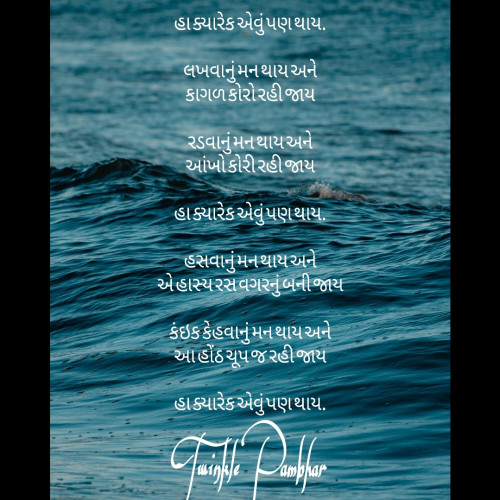 હા ક્યારેક એવું પણ થાય.
લખવાનું મન થાય અને
કાગળ કોરો રહી જાય
રડવાનું મન થાય અને
આંખો કોરી રહી જાય
હા ક્યારેક એવું પણ થાય.
હસવાનું મન થાય અને
એ હાસ્ય રસ વગરનું બની જાય
કંઇક કેહવાનું મન થાય અને
આ હોંઠ ચૂપ જ રહી જાય
હા ક્યારેક એવું પણ થાય.
Twinkle Pambhar